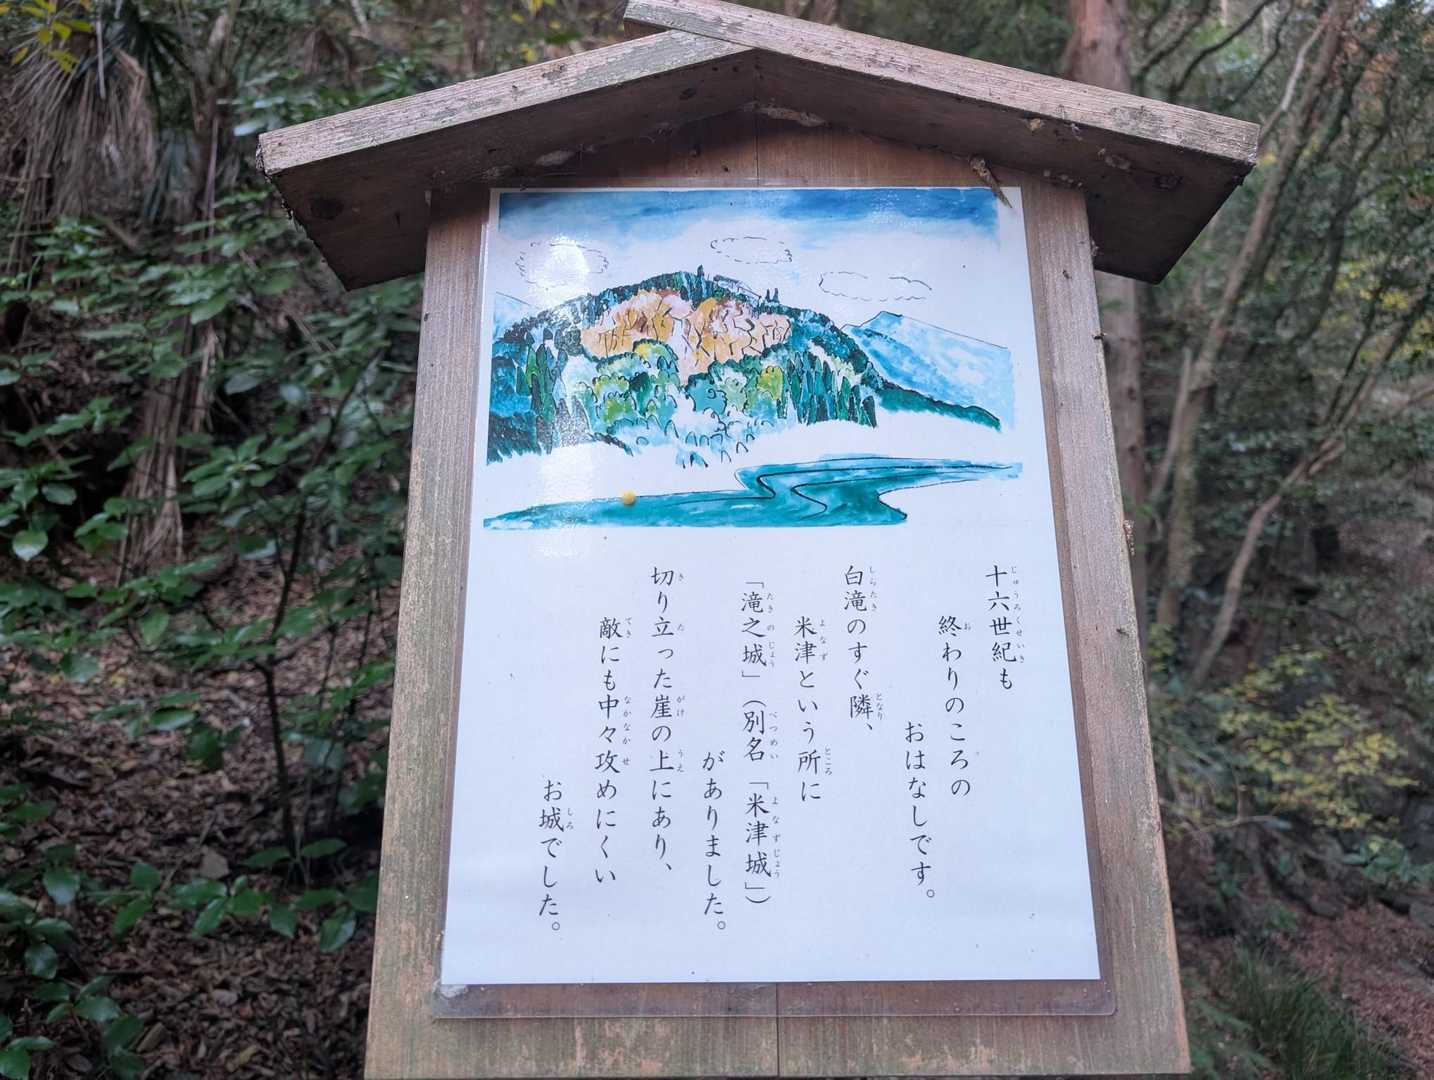 十六世紀も
終わりのころの
おはなしです。
白滝のすぐ隣、
米津という所に
「滝之城」（別名「米津城」）
がありました。
切り立った崖の上にあり、
敵にも中々攻めにくい
お城でした。